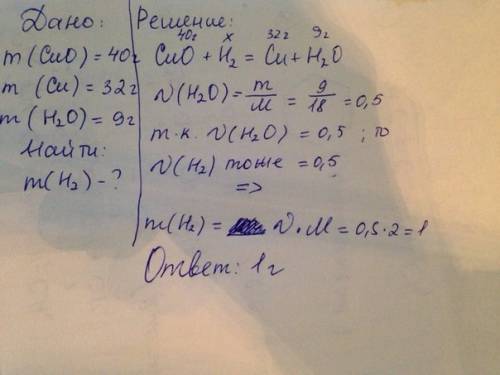 Дано:
m(CuO)=40г
m (Cu)=32г
m(H₂O)=9г
Найти:
m(H₂)-?
Решение:
40г x 32г 9г
CuO + H₂ = Cu + H₂O
ν(H₂O)=m/M = 9/18 = 0,5
т.к. ν(H₂O) = 0,5 ; то
ν(H₂) тоже = 0,5
=>
m(H₂) = ν·M = 0,5·2=1
Ответ: 1г